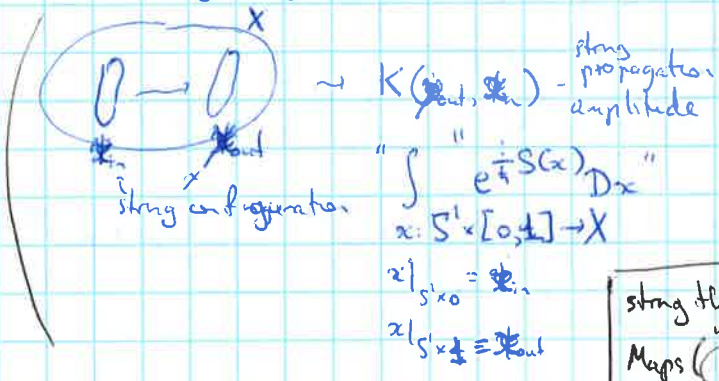 X
~ K( out, in) - string propagation amplitude
in
out
string configuration
" ∫ " e^{\frac{i}{ħ} S(x)} Dx "
x: S¹ × [0,1] → X
x|_{S¹×0} = in
x|_{S¹×1} = out
string
Maps (